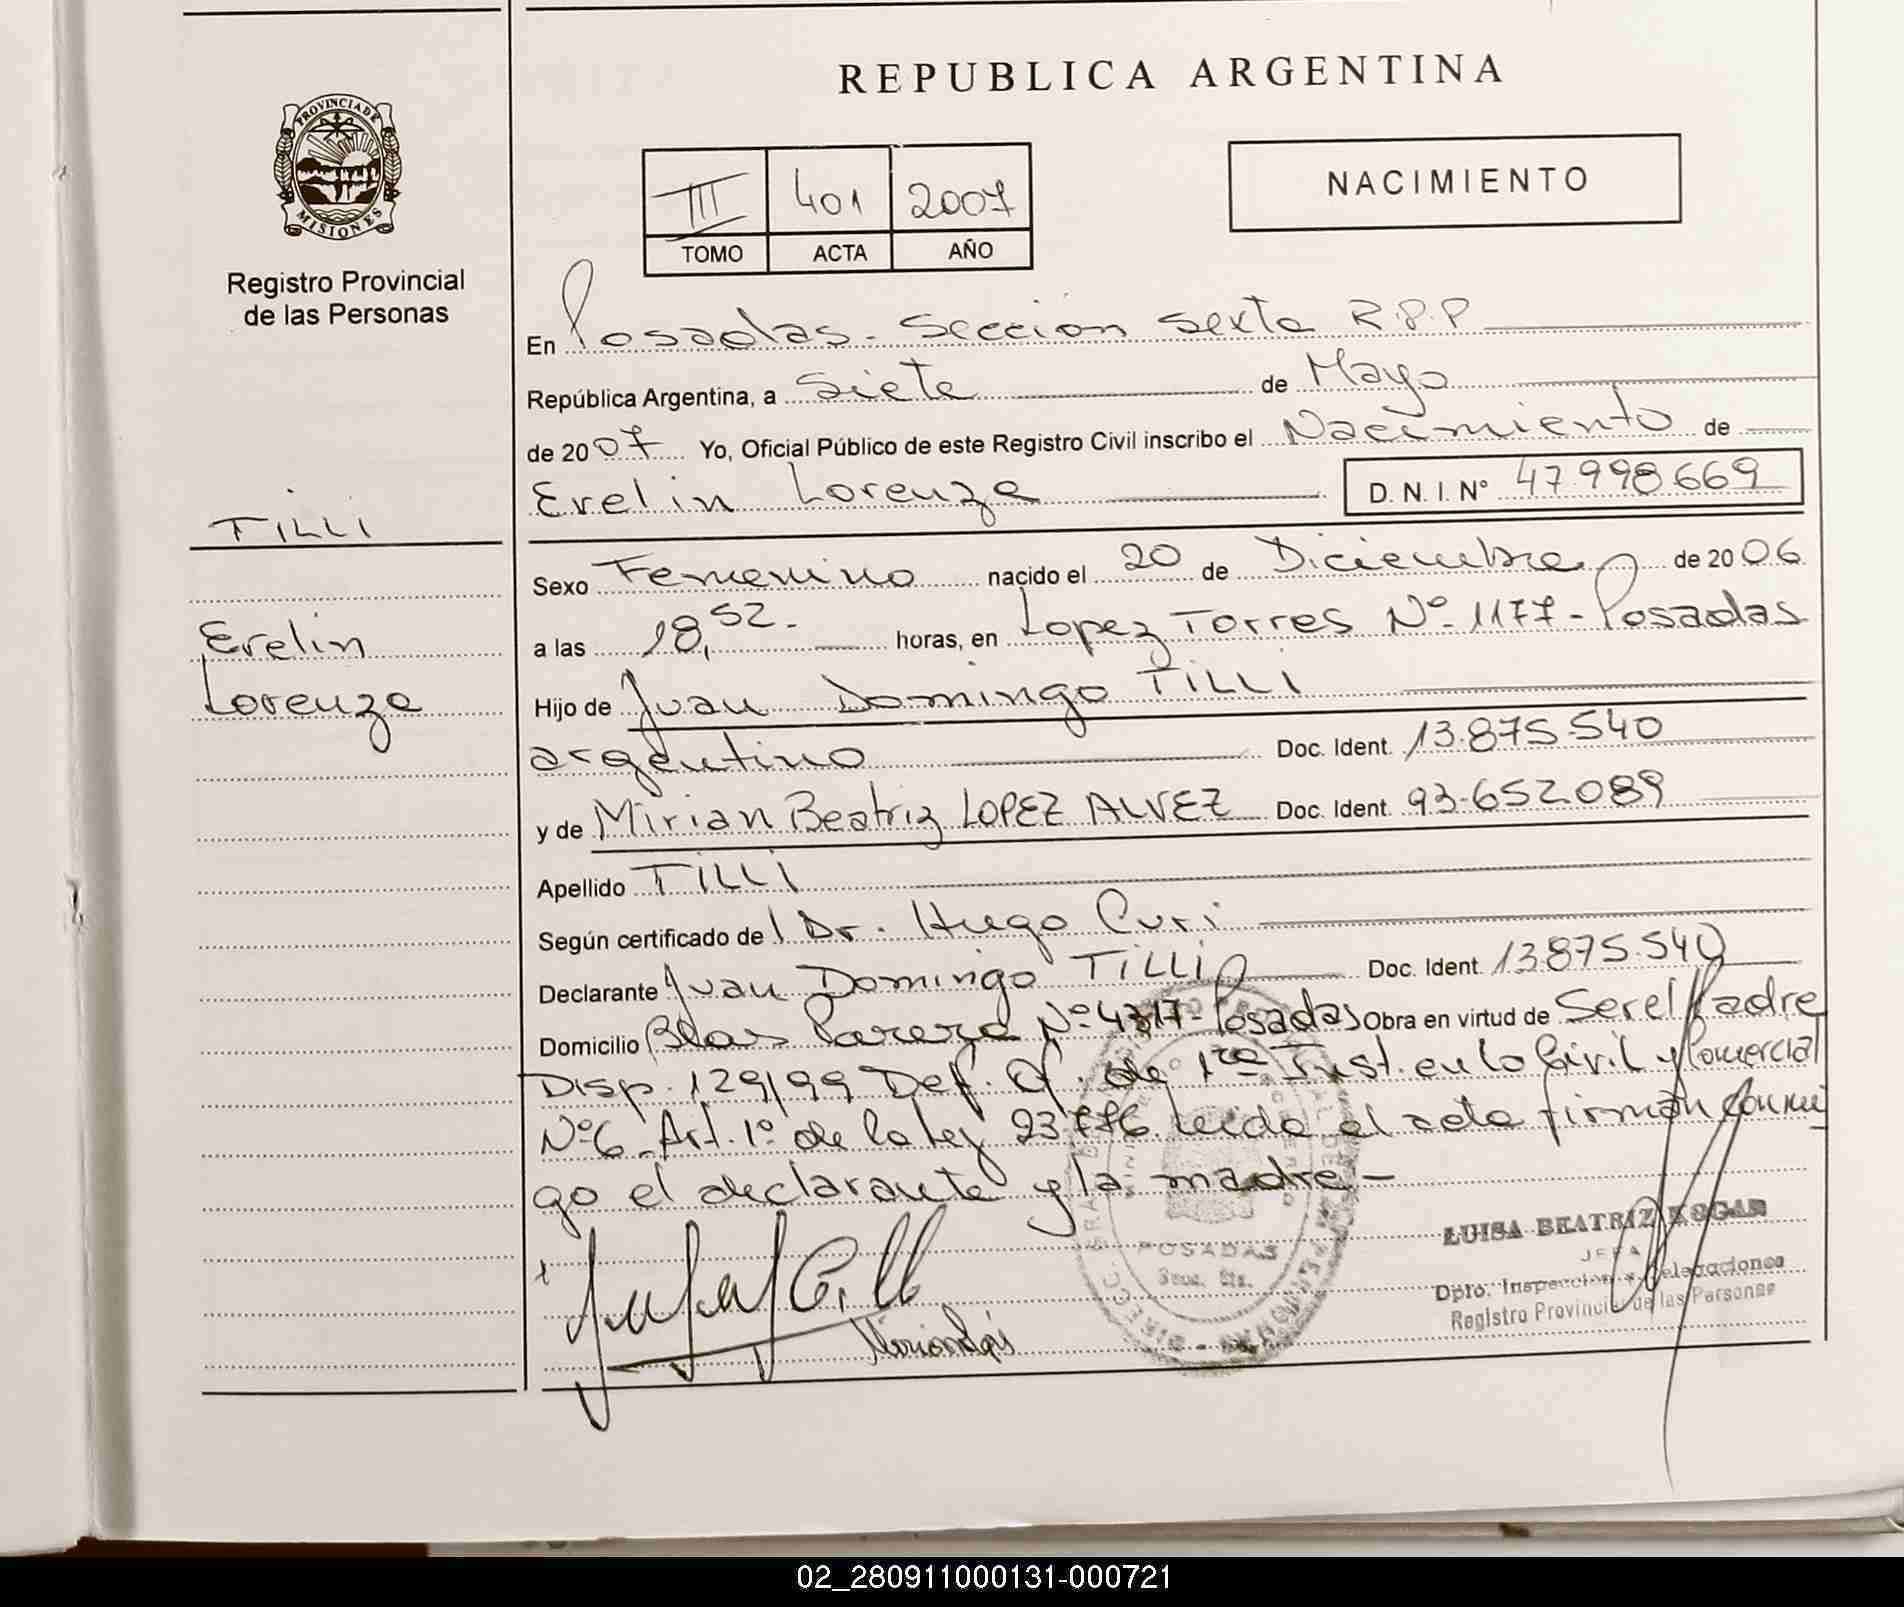 REPUBLICA ARGENTINA
PROVINCIA DE
MISIONES
Registro Provincial
de las Personas
III 401 2007
TOMO ACTA AÑO
NACIMIENTO
En Posadas - Sección Sexta R.P.P
República Argentina, a Siete de Mayo
de 2007 Yo, Oficial Público de este Registro Civil inscribo el Nacimiento de
Erelin Lorenza D. N. I. Nº 47.998.669
TILLI
Erelin
Lorenza
Sexo Femenino nacido el 20 de Diciembre de 2006
a las 18,52.- horas, en Lopez Torres Nº 1177 - Posadas
Hijo de Juan Domingo TILLI
argentino Doc. Ident. 13.875.540
y de Mirian Beatriz LOPEZ ALVEZ Doc. Ident. 93.652.089
Apellido TILLI
Según certificado de Dr. Hugo Curi
Declarante Juan Domingo TILLI Doc. Ident. 13.875.540
Domicilio Blas Parera Nº 4317 - Posadas Obra en virtud de Ser el Padre
Disp. 129/99 Def. Of. de 1ra Inst. en lo Civil y Comercial
Nº6. Art. 1º de la Ley 23.776. Leida el acta firman conmi
go el declarante y la madre -
POSADAS
Secc. 6ta.
LUISA BEATRIZ KOGAN
JEFA
Dpto. Inspección y Delegaciones
Registro Provincial de las Personas
02_280911000131-000721